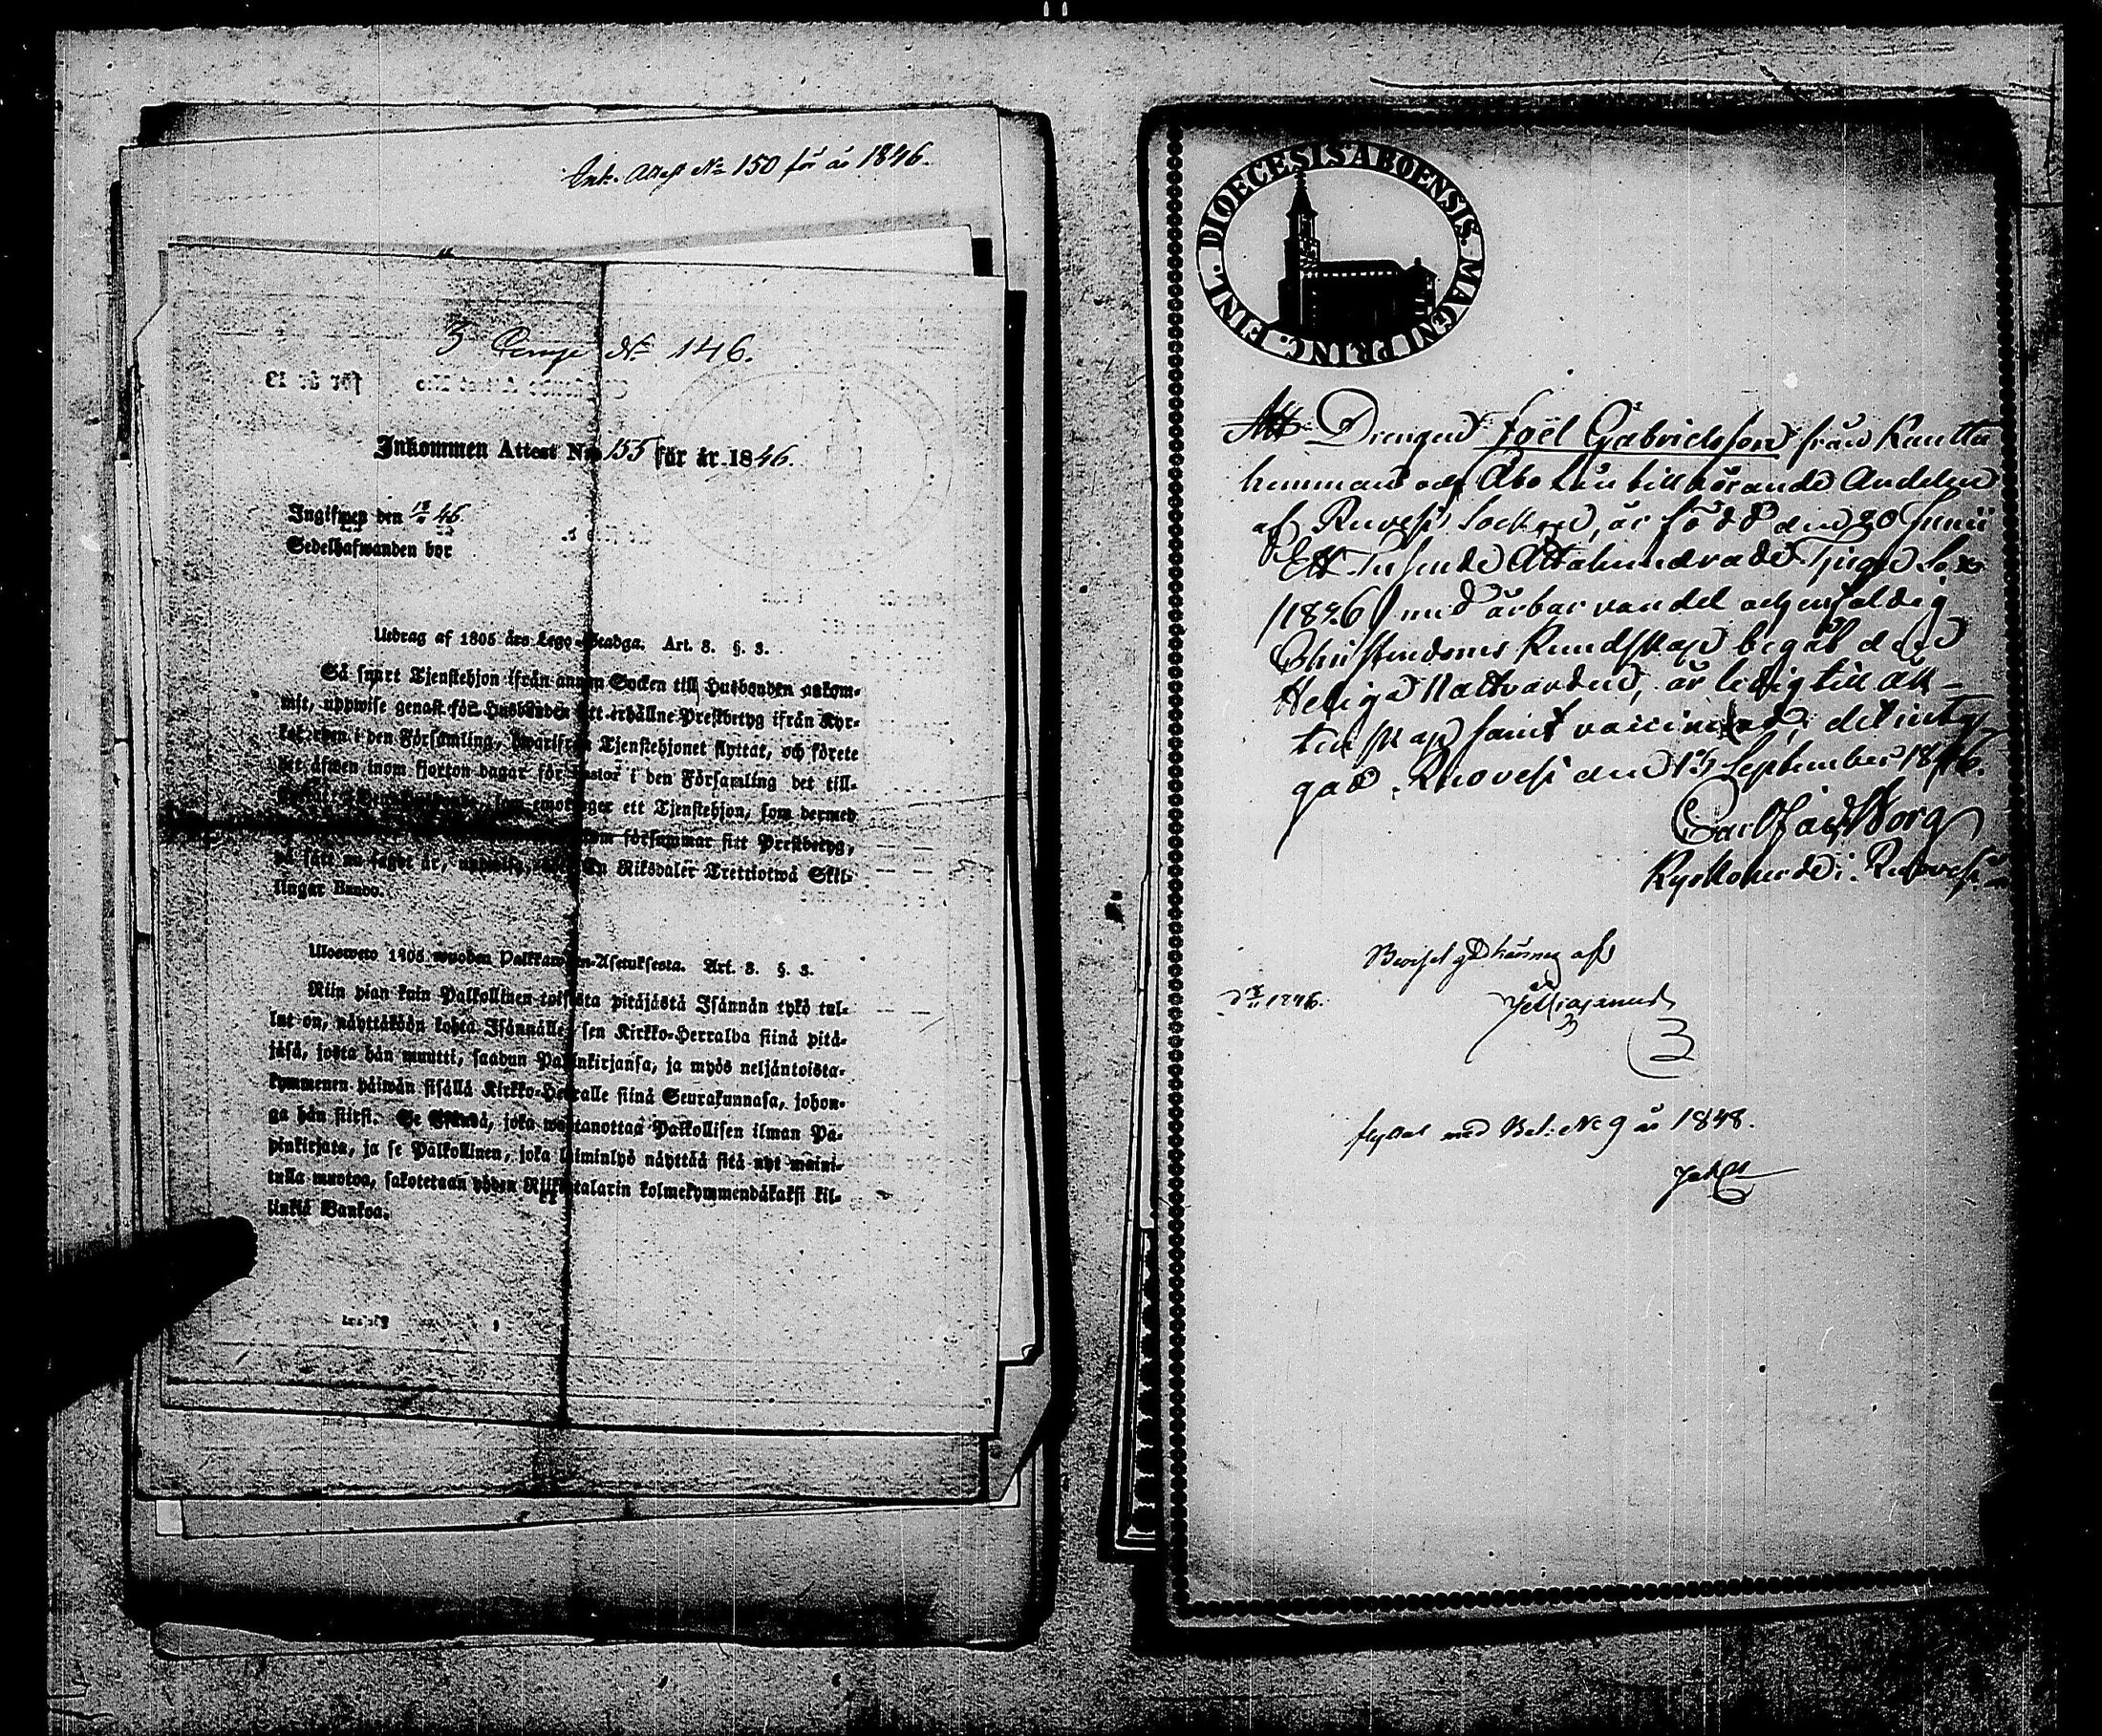 Ink. Attest No 150 för år 1846.
No 146.
Inkommen Attest No 155 för år 1846.
Ingifwen den 46.
Sedelhafwanden bor
Utdrag af 1805 års Lego-Stadga. Art. 8. §. 3.
Så snart Tjenstehjon ifrån annan Socken till Husbonden ankom-
mit, uppwise genast för Husbonden sitt erhållne Prestbetyg ifrån Kyr-
koherden i den Församling, hwarifrån Tjenstehjonet flyttat, och förete
det äfwen inom fjorton dagar för Pastor i den Församling det till-
emottager ett Tjenstehjon, som dermed
som försummar sitt Prestbetyg,
på sätt nu sagdt är, En Riksdaler Trettiotwå Skil-
lingar Banco.
Ulosweto 1805 wuoden Palkkawäen-Asetuksesta. Art. 8. §. 3.
Niin pian kuin Palkollinen toisesta pitäjästä Isännän tykö tul-
lut on, näyttäköön kohta Isännälle, sen Kirkko-Herralda siinä pitä-
jäsä, josta hän muutti, saadun Papinkirjansa, ja myös neljäntoista-
kymmenen päiwän sisällä Kirkko-Herralle siinä Seurakunnasa, johon-
ga hän siirsi. Se Isändä, joka wastanottaa Palkollisen ilman Pa-
pinkirjata, ja se Palkollinen, joka laiminlyö näyttää sitä nyt maini-
tulla muotoa, sakotetaan yhden Riikintalarin kolmekymmendäkaksi kil-
linkiä Bankoa.
DIOECESIS ABOENSIS. MAGNI PRINC. FINL.
Att Drengen Joël Gabrielsson från Kautta
hemman och Åbo Län tillhörande Andelen
af Ruovesi Socken, är född den 20 Junii
Ett Tusende Åttahundrade Tjugu Sex
/1826/ med ärbar vandel och enfaldig
Christendoms Kundskap begått den
Heliga Nattvarden, är ledig till äk-
tenskap samt vaccinerad; det inty-
gad. Ruovesi den 13 September 1846.
Carl Jac Borg
Kyrkoherde i Ruovesi
Beviset godkännes af
1846.
flyttat med Bet: No 9 år 1848.